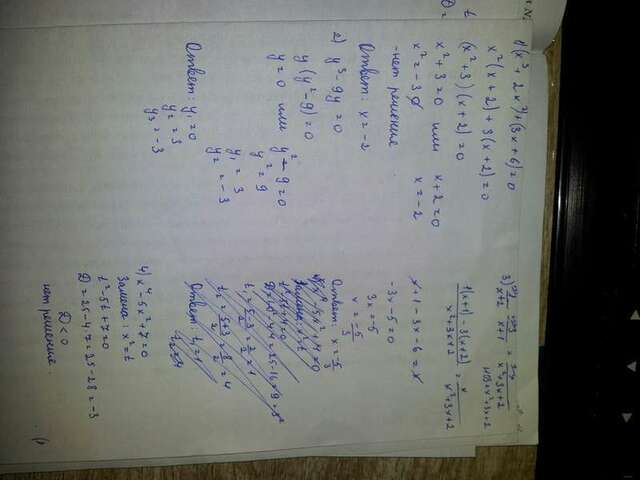 1) (x³ + 2x²) + (3x + 6) = 0
x²(x + 2) + 3(x + 2) = 0
(x² + 3)(x + 2) = 0
x² + 3 = 0 или x + 2 = 0
x² = -3 ∅ x = -2
- нет решения
Ответ: x = -2
2) y³ - 9y = 0
y(y² - 9) = 0
y = 0 или y² - 9 = 0
y² = 9
y₁ = 3
y₂ = -3
Ответ: y₁ = 0
y₂ = 3
y₃ = -3
1(x+1) - 3(x+2) / x² + 3x + 2 = x / x² + 3x + 2
x + 1 - 3x - 6 = x
-3x - 5 = 0
3x = -5
x = -5/3
Ответ: x = -5/3
t₁ = 5-3/2 = 2/2 = 1
t₂ = 5+3/2 = 8/2 = 4
Ответ: t₁ = 1
t₂ = 4
4) x⁴ - 5x² + 7 = 0
Замена: x² = t
t² - 5t + 7 = 0
D = 25 - 4·7 = 25 - 28 = -3
D < 0
нет решения.